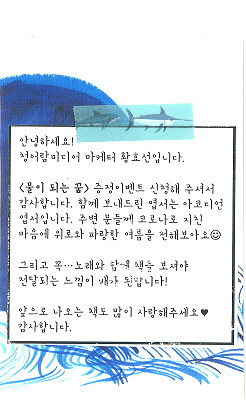 안녕하세요!
청어람미디어 마케터 황호선입니다.
<물이 되는 꿈> 증정이벤트 신청해 주셔서
감사합니다. 함께 보내드린 엽서는 아코디언
엽서입니다. 주변 분들께 코로나로 지친
마음에 위로와 파랑한 여름을 전해보아요☺
그리고 꼭…노래와 함께 책을 보셔야
전달되는 느낌이 배가 된답니다!
앞으로 나오는 책도 많이 사랑해주세요♥
감사합니다.